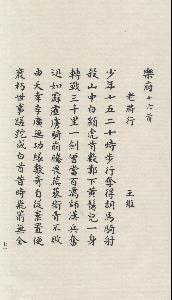 樂府十六首
老將行
王維
少年十五二十時步行奪得胡馬騎射
殺山中白額虎肯數鄴下黃鬚兒一身
轉戰三千里一劍曾當百萬師漢兵奮
迅如霹靂虜騎崩騰畏蒺藜衛青不敗
由天幸李廣無功緣數奇自從棄置便
衰朽世事蹉跎成白首昔時飛箭無全